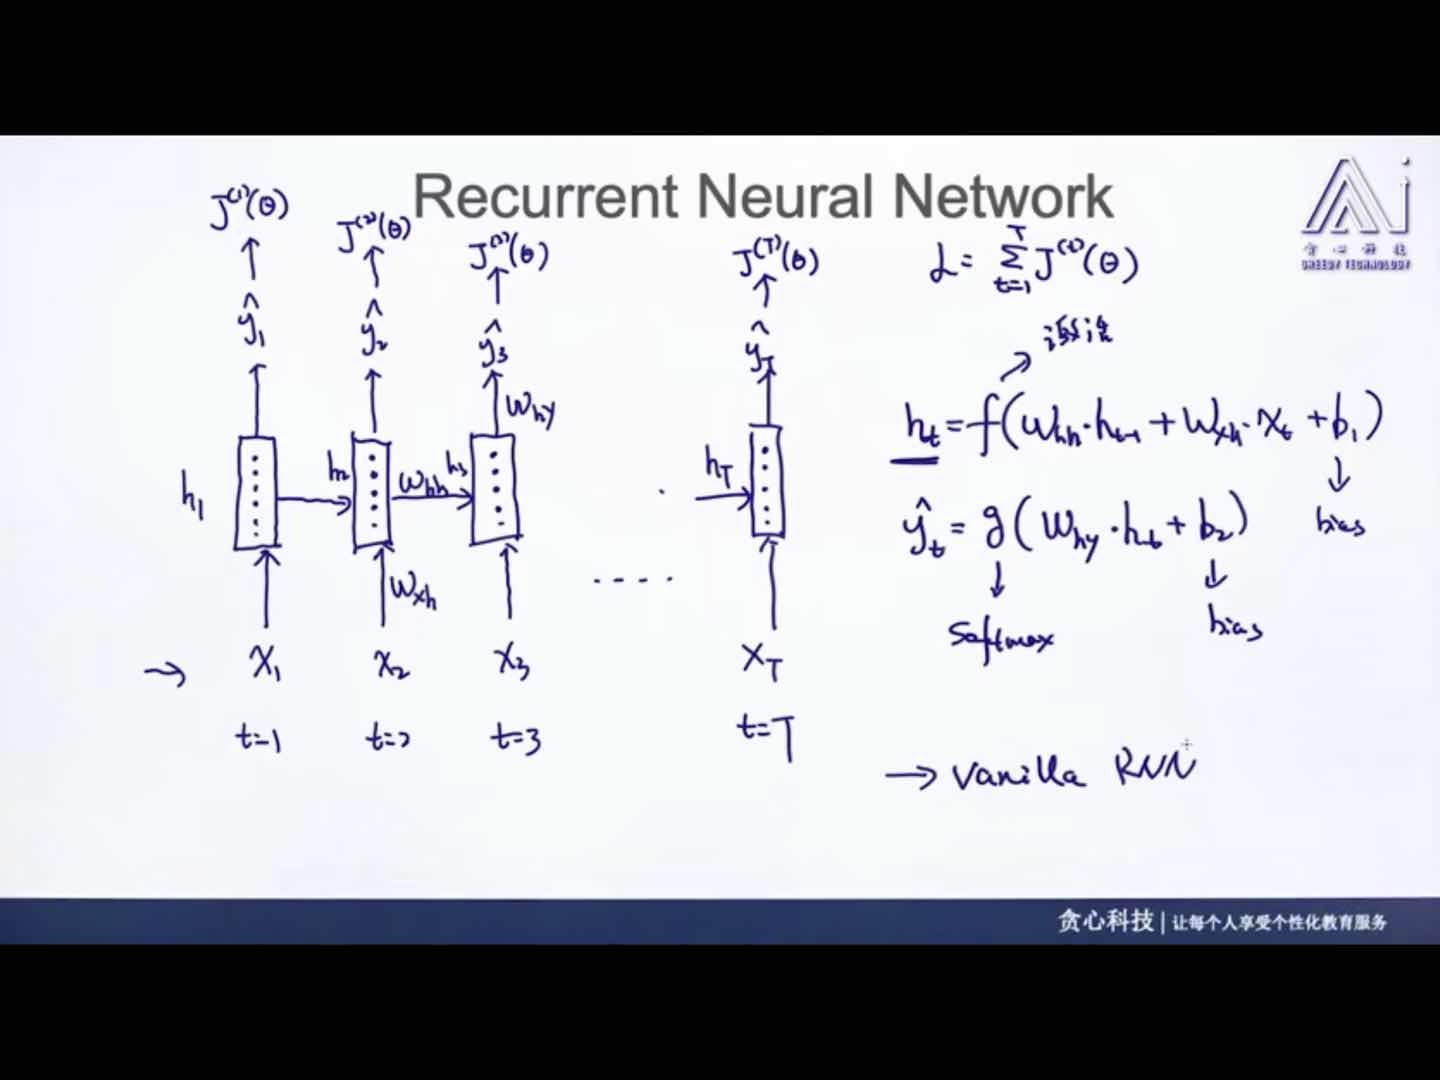 Recurrent Neural Network
贪心科技
GREEDY TECHNOLOGY
J⁽¹⁾(θ) J⁽²⁾(θ) J⁽³⁾(θ) J⁽ᵀ⁾(θ)
ŷ₁ ŷ₂ ŷ₃ ŷ_T
W_hy
h₁ h₂ W_hh h₃ h_T
W_xh
. . . .
→ x₁ x₂ x₃ x_T
t=1 t=2 t=3 t=T
L = Σ_{t=1}^{T} J⁽ᵗ⁾(θ)
h_t = f(W_hh · h_{t-1} + W_xh · x_t + b₁)
bias
ŷ_t = g(W_hy · h_t + b₂)
softmax
bias
→ Vanilla RNN
贪心科技 | 让每个人享受个性化教育服务